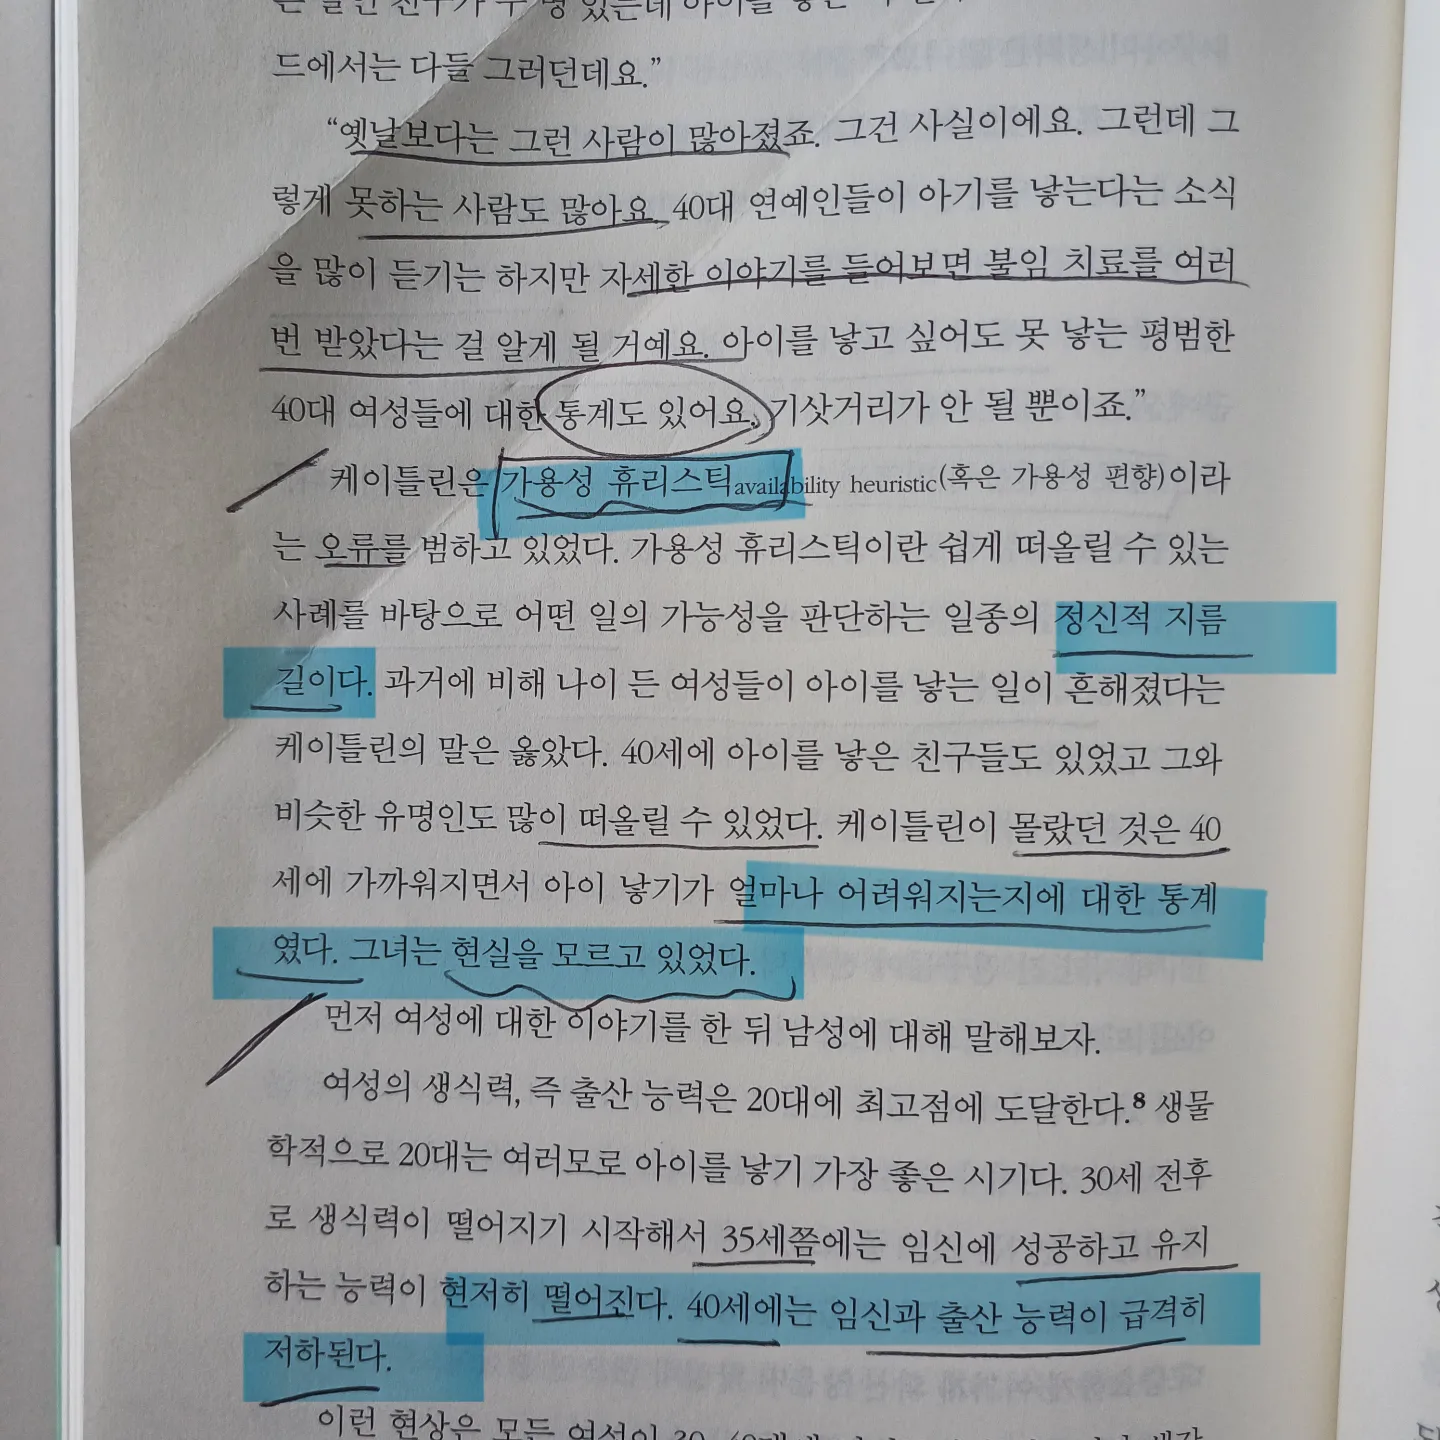 드에서는 다들 그러던데요.”
“옛날보다는 그런 사람이 많아졌죠. 그건 사실이에요. 그런데 그
렇게 못하는 사람도 많아요. 40대 연예인들이 아기를 낳는다는 소식
을 많이 듣기는 하지만 자세한 이야기를 들어보면 불임 치료를 여러
번 받았다는 걸 알게 될 거예요. 아이를 낳고 싶어도 못 낳는 평범한
40대 여성들에 대한 통계도 있어요. 기삿거리가 안 될 뿐이죠.”
케이틀린은 가용성 휴리스틱availability heuristic(혹은 가용성 편향)이라
는 오류를 범하고 있었다. 가용성 휴리스틱이란 쉽게 떠올릴 수 있는
사례를 바탕으로 어떤 일의 가능성을 판단하는 일종의 정신적 지름
길이다. 과거에 비해 나이 든 여성들이 아이를 낳는 일이 흔해졌다는
케이틀린의 말은 옳았다. 40세에 아이를 낳은 친구들도 있었고 그와
비슷한 유명인도 많이 떠올릴 수 있었다. 케이틀린이 몰랐던 것은 40
세에 가까워지면서 아이 낳기가 얼마나 어려워지는지에 대한 통계
였다. 그녀는 현실을 모르고 있었다.
먼저 여성에 대한 이야기를 한 뒤 남성에 대해 말해보자.
여성의 생식력, 즉 출산 능력은 20대에 최고점에 도달한다.8 생물
학적으로 20대는 여러모로 아이를 낳기 가장 좋은 시기다. 30세 전후
로 생식력이 떨어지기 시작해서 35세쯤에는 임신에 성공하고 유지
하는 능력이 현저히 떨어진다. 40세에는 임신과 출산 능력이 급격히
저하된다.
이런 현상은 모든 여성이